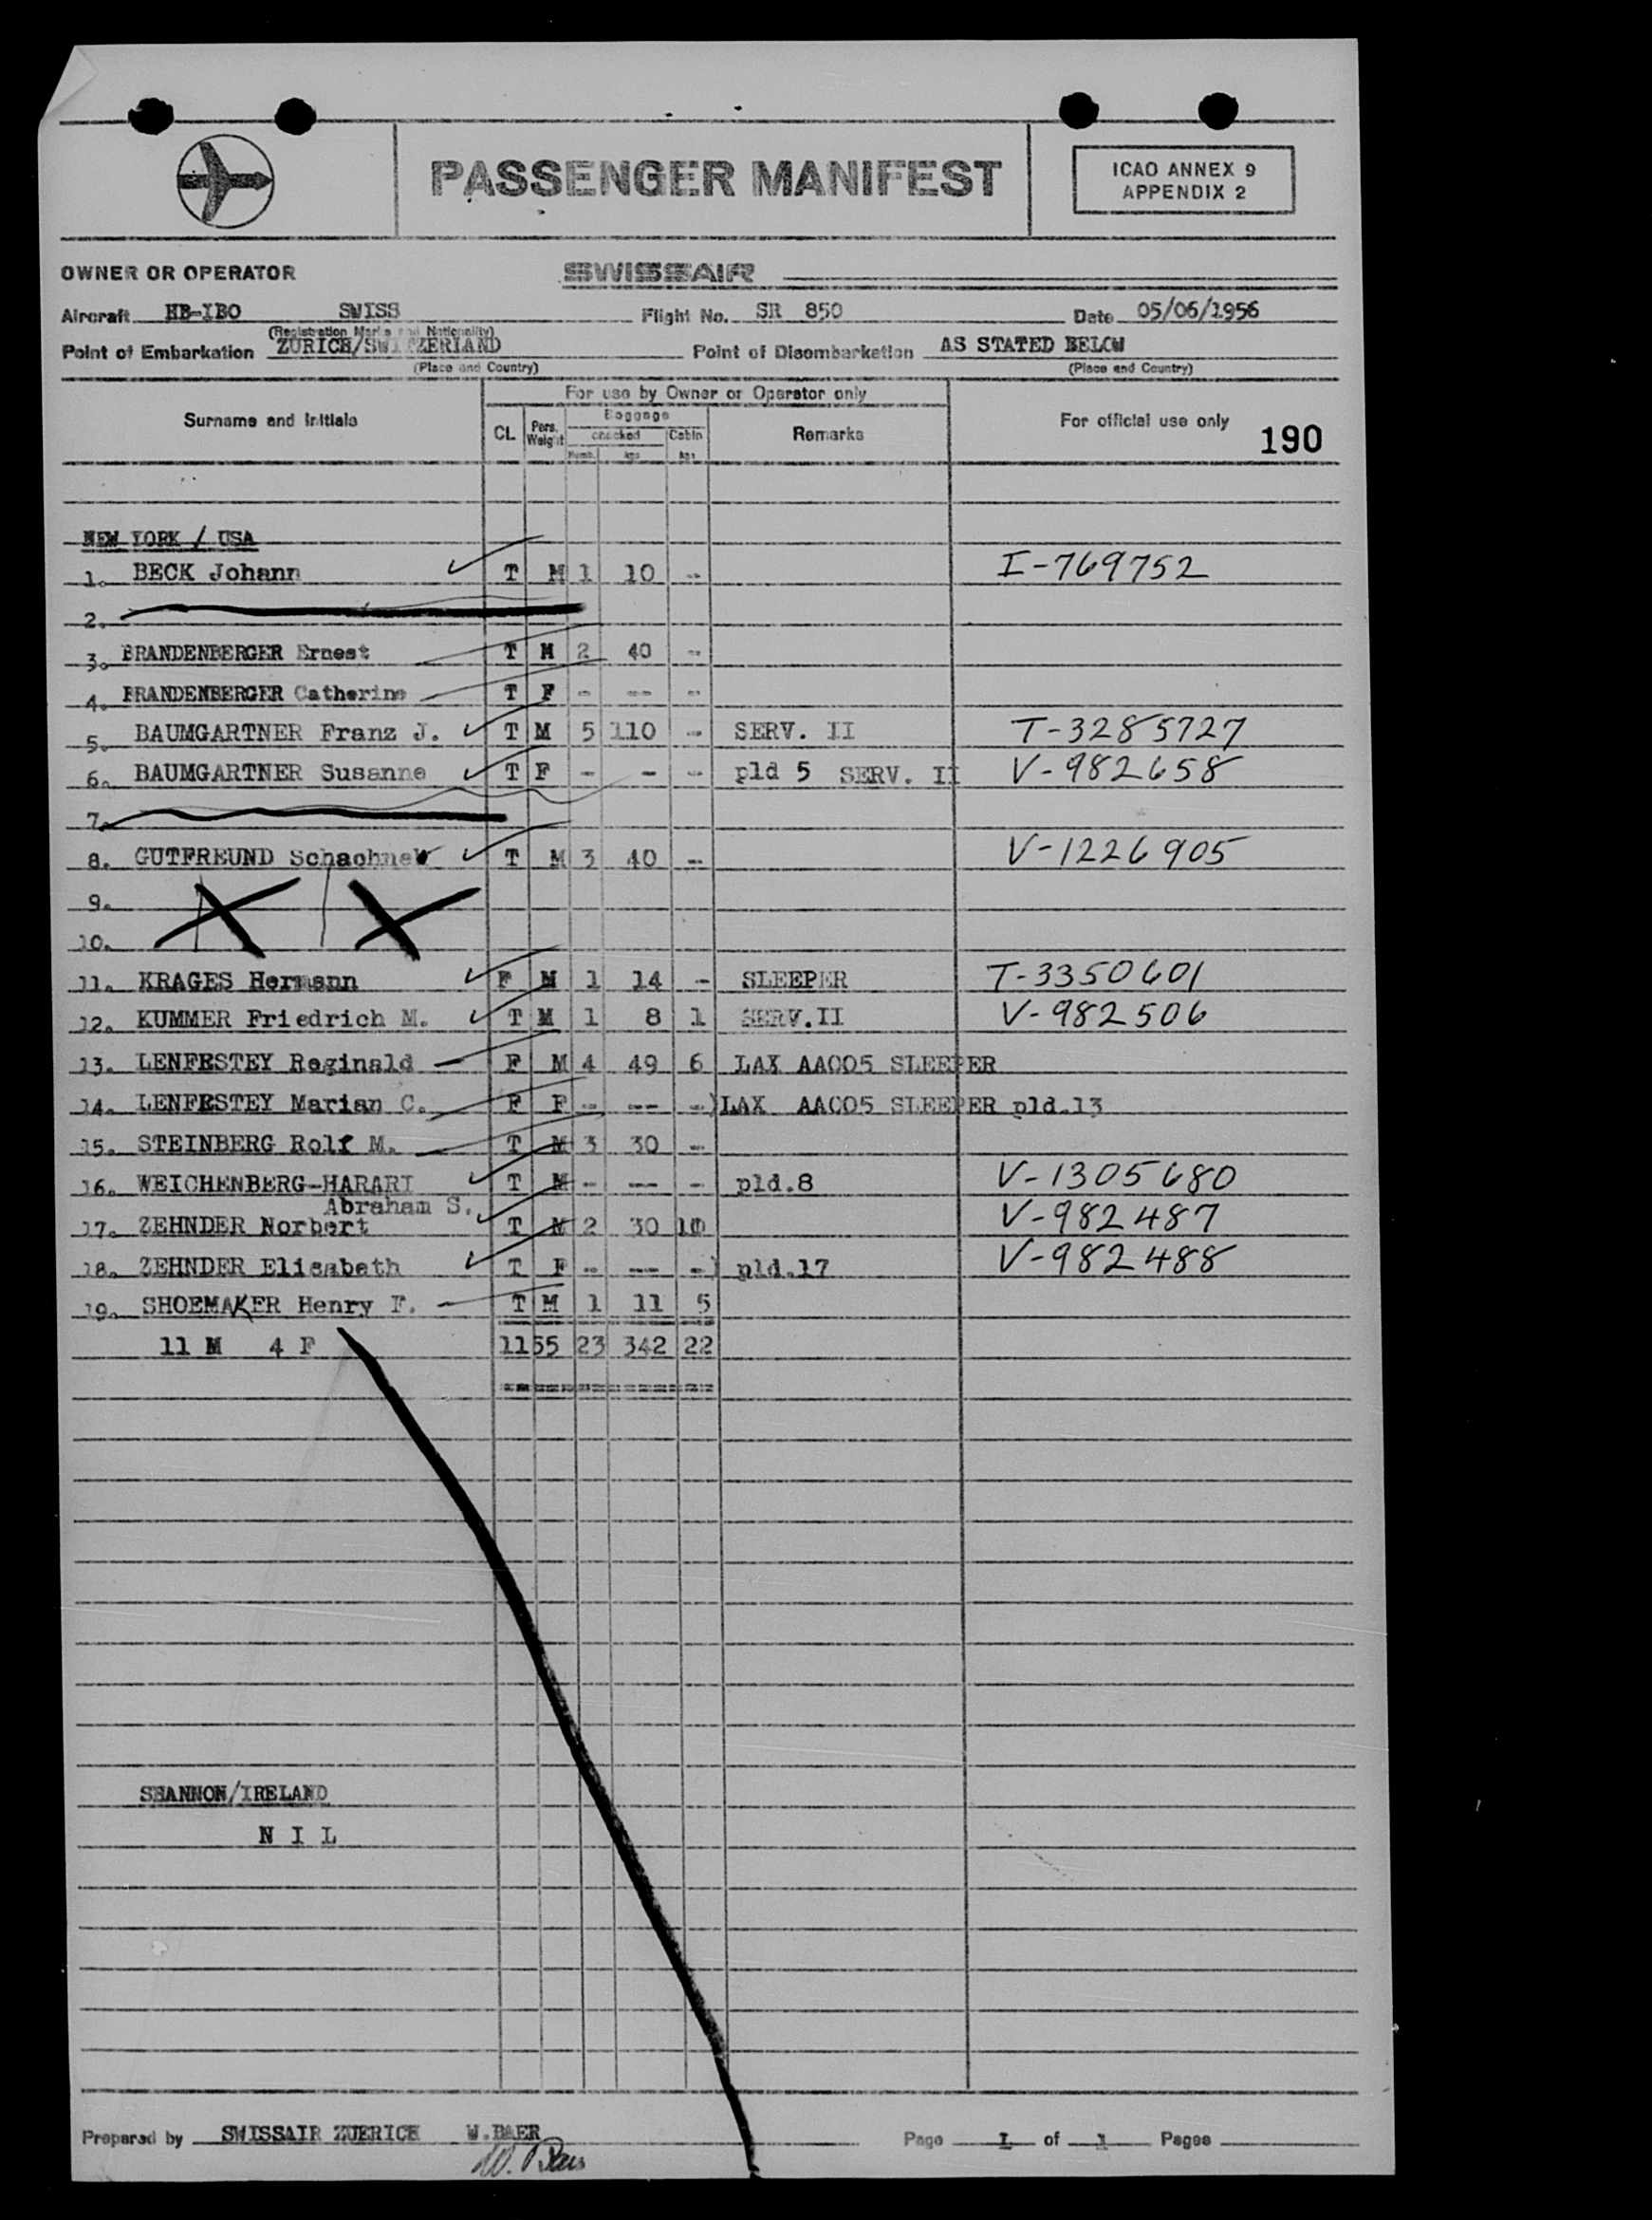 PASSENGER MANIFEST
ICAO ANNEX 9
APPENDIX 2
OWNER OR OPERATOR SWISSAIR
Aircraft HB-IBO SWISS Flight No. SR 850 Date 05/06/1956
(Registration Marks and Nationality)
Point of Embarkation ZURICH/SWITZERLAND Point of Disembarkation AS STATED BELOW
(Place and Country) (Place and Country)
For use by Owner or Operator only
Surname and Initials CL. Pers. Weight Baggage checked Numb. kgs Cabin kgs Remarks For official use only 190
NEW YORK / USA
1. BECK Johann T M 1 10 - I-769752
2.
3. BRANDENBERGER Ernest T M 2 40 -
4. BRANDENBERGER Catherine T F - -- -
5. BAUMGARTNER Franz J. T M 5 110 - SERV. II T-3285727
6. BAUMGARTNER Susanne T F - - - pld 5 SERV. II V-982658
7.
8. GUTFREUND T M 3 40 - V-1226905
9.
10.
11. KRAGES Hermann F M 1 14 - SLEEPER T-3350601
12. KUMMER Friedrich M. T M 1 8 1 SERV.II V-982506
13. LENFESTEY Reginald F M 4 49 6 LAX AA005 SLEEPER
14. LENFESTEY Marian C. F F - -- -) LAX AA005 SLEEPER pld.13
15. STEINBERG Rolf M. T M 3 30 -
16. WEICHENBERG-HARARI T M - -- - pld.8 V-1305680
Abraham S.
17. ZEHNDER Norbert T M 2 30 10 V-982487
18. ZEHNDER Elisabeth T F - -- -) pld.17 V-982488
19. SHOEMAKER Henry F. T M 1 11 5
11 M 4 F 1155 23 342 22
SHANNON/IRELAND
N I L
Prepared by SWISSAIR ZUERICH W.BAER Page 1 of 1 Pages
W. Baer